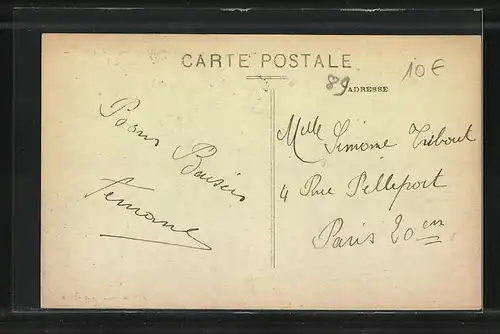 CARTE POSTALE
10€
89
ADRESSE
Bons
Baisers
Melle Simone Tribout
4 Rue Pelleport
Paris 20em